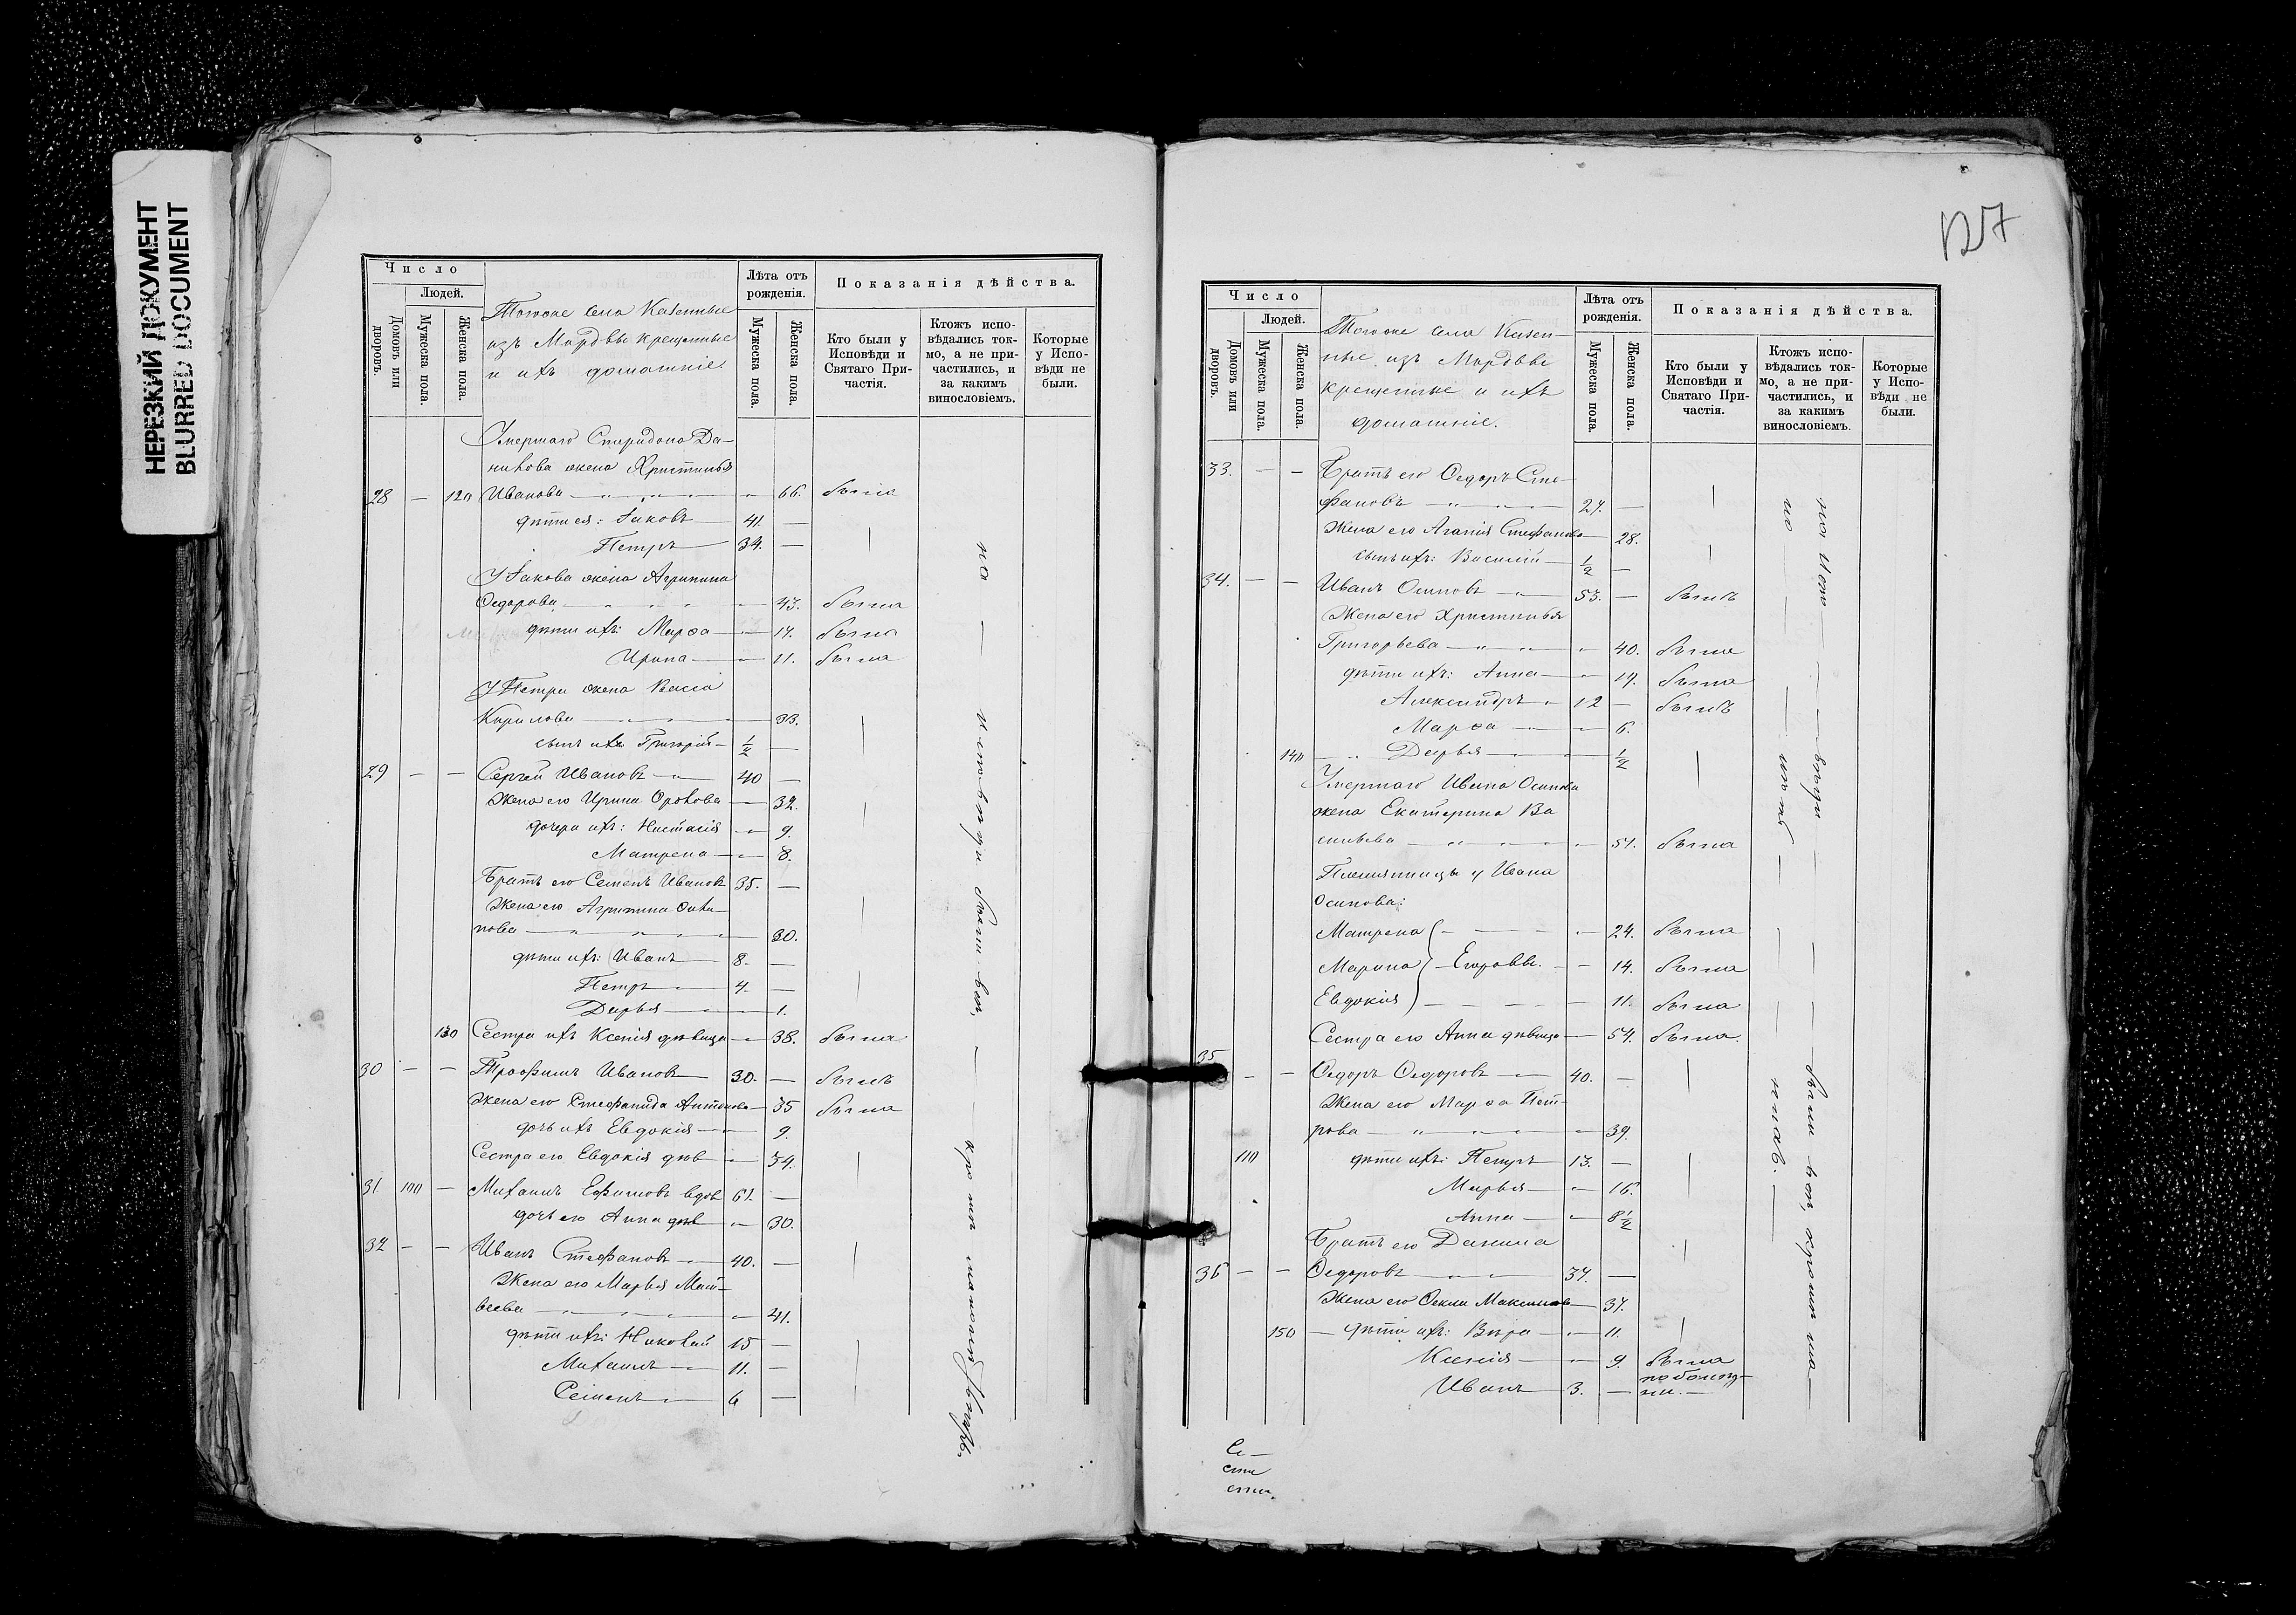 НЕРЕЗКИЙ ДОКУМЕНТ
BLURRED DOCUMENT
Число
Людей.
Домовъ или дворовъ.
Мужеска пола.
Женска пола.
Тогоже села Казенные
изъ Мордвы крещенные
и ихъ домашніе.
Лѣта отъ рожденія.
Мужеска пола.
Женска пола.
Показанія дѣйства.
Кто были у Исповѣди и Святаго Причастія.
Ктожъ исповѣдались токмо, а не причастились, и за какимъ винословіемъ.
Которые у Исповѣди не были.
Умершаго Спиридона Да-
нилова жена Христинья
28 — 120 Иванова — 66. была
дѣти ея: Iаковъ 41. —
Петръ 34. —
У Iакова жена Агрипина
Ѳедорова — 43. была
дѣти ихъ: Марѳа — 14. была
Ирина — 11. была
У Петра жена Васса
Кирилова — 33.
сынъ ихъ Григорій — ½ —
29 — — Сергей Ивановъ 40 —
Жена его Ирина Фролова — 32.
дочери ихъ: Настасія — 9.
Матрена — 8.
Братъ его Семенъ Ивановъ 35. —
Жена его Агрипина
нова — 30.
дѣти ихъ: Иванъ 8. —
Петръ 4. —
Дарья — 1.
130 Сестра ихъ Ксенія дѣвица — 38. была
30 — — Трофимъ Ивановъ 30. — былъ
Жена его Стефанида Антонова — 35 была
дочь ихъ Евдокія — 9.
Сестра его Евдокія дѣв — 34.
31. 100 — Михаилъ Ефимовъ вдов 61. —
дочь его Анна дѣв — 30.
32 — — Иванъ Стефановъ 40. —
Жена его Марья Мат-
веева — 41.
дѣти ихъ: Николай 15 —
Михаилъ 11. —
Семенъ 6 —
127
Число
Людей.
Домовъ или дворовъ.
Мужеска пола.
Женска пола.
Тогоже села Казен-
ные изъ Мордвы
крещенные и ихъ
домашніе.
Лѣта отъ рожденія.
Мужеска пола.
Женска пола.
Показанія дѣйства.
Кто были у Исповѣди и Святаго Причастія.
Ктожъ исповѣдались токмо, а не причастились, и за какимъ винословіемъ.
Которые у Исповѣди не были.
33. — — Братъ его Ѳедоръ Сте-
фановъ 27. —
Жена его Агапія Стефанова — 28.
сынъ ихъ: Василій — ½ —
34. — — Иванъ Осиповъ 53. — былъ
Жена его Христинья
Григорьева — 40. была
дѣти ихъ: Анна — 19. была
Александръ 12 — былъ
Марѳа — 6.
140 Дарья — ½
Умершаго Ивана Осипова
жена Екатерина Ва
сильева — 51. была
Племянницы у Ивана
Осипова:
Матрена — 24. была
Марина Егоровы. — 14. была
Евдокія — 11. была
Сестра его Анна дѣвица — 54. была.
35 — — Ѳедоръ Ѳедоровъ 40. —
Жена его Марѳа Пет-
рова — 39.
110 дѣти ихъ: Петръ 13. —
Марья — 16.
Анна — 8½
Братъ его Данила
36 — — Ѳедоровъ 37. —
Жена его Ѳекла Максимова — 37.
150 — дѣти ихъ: Вѣра — 11.
Ксенія — 9. была
Иванъ 3. — по болѣз-
ни. —